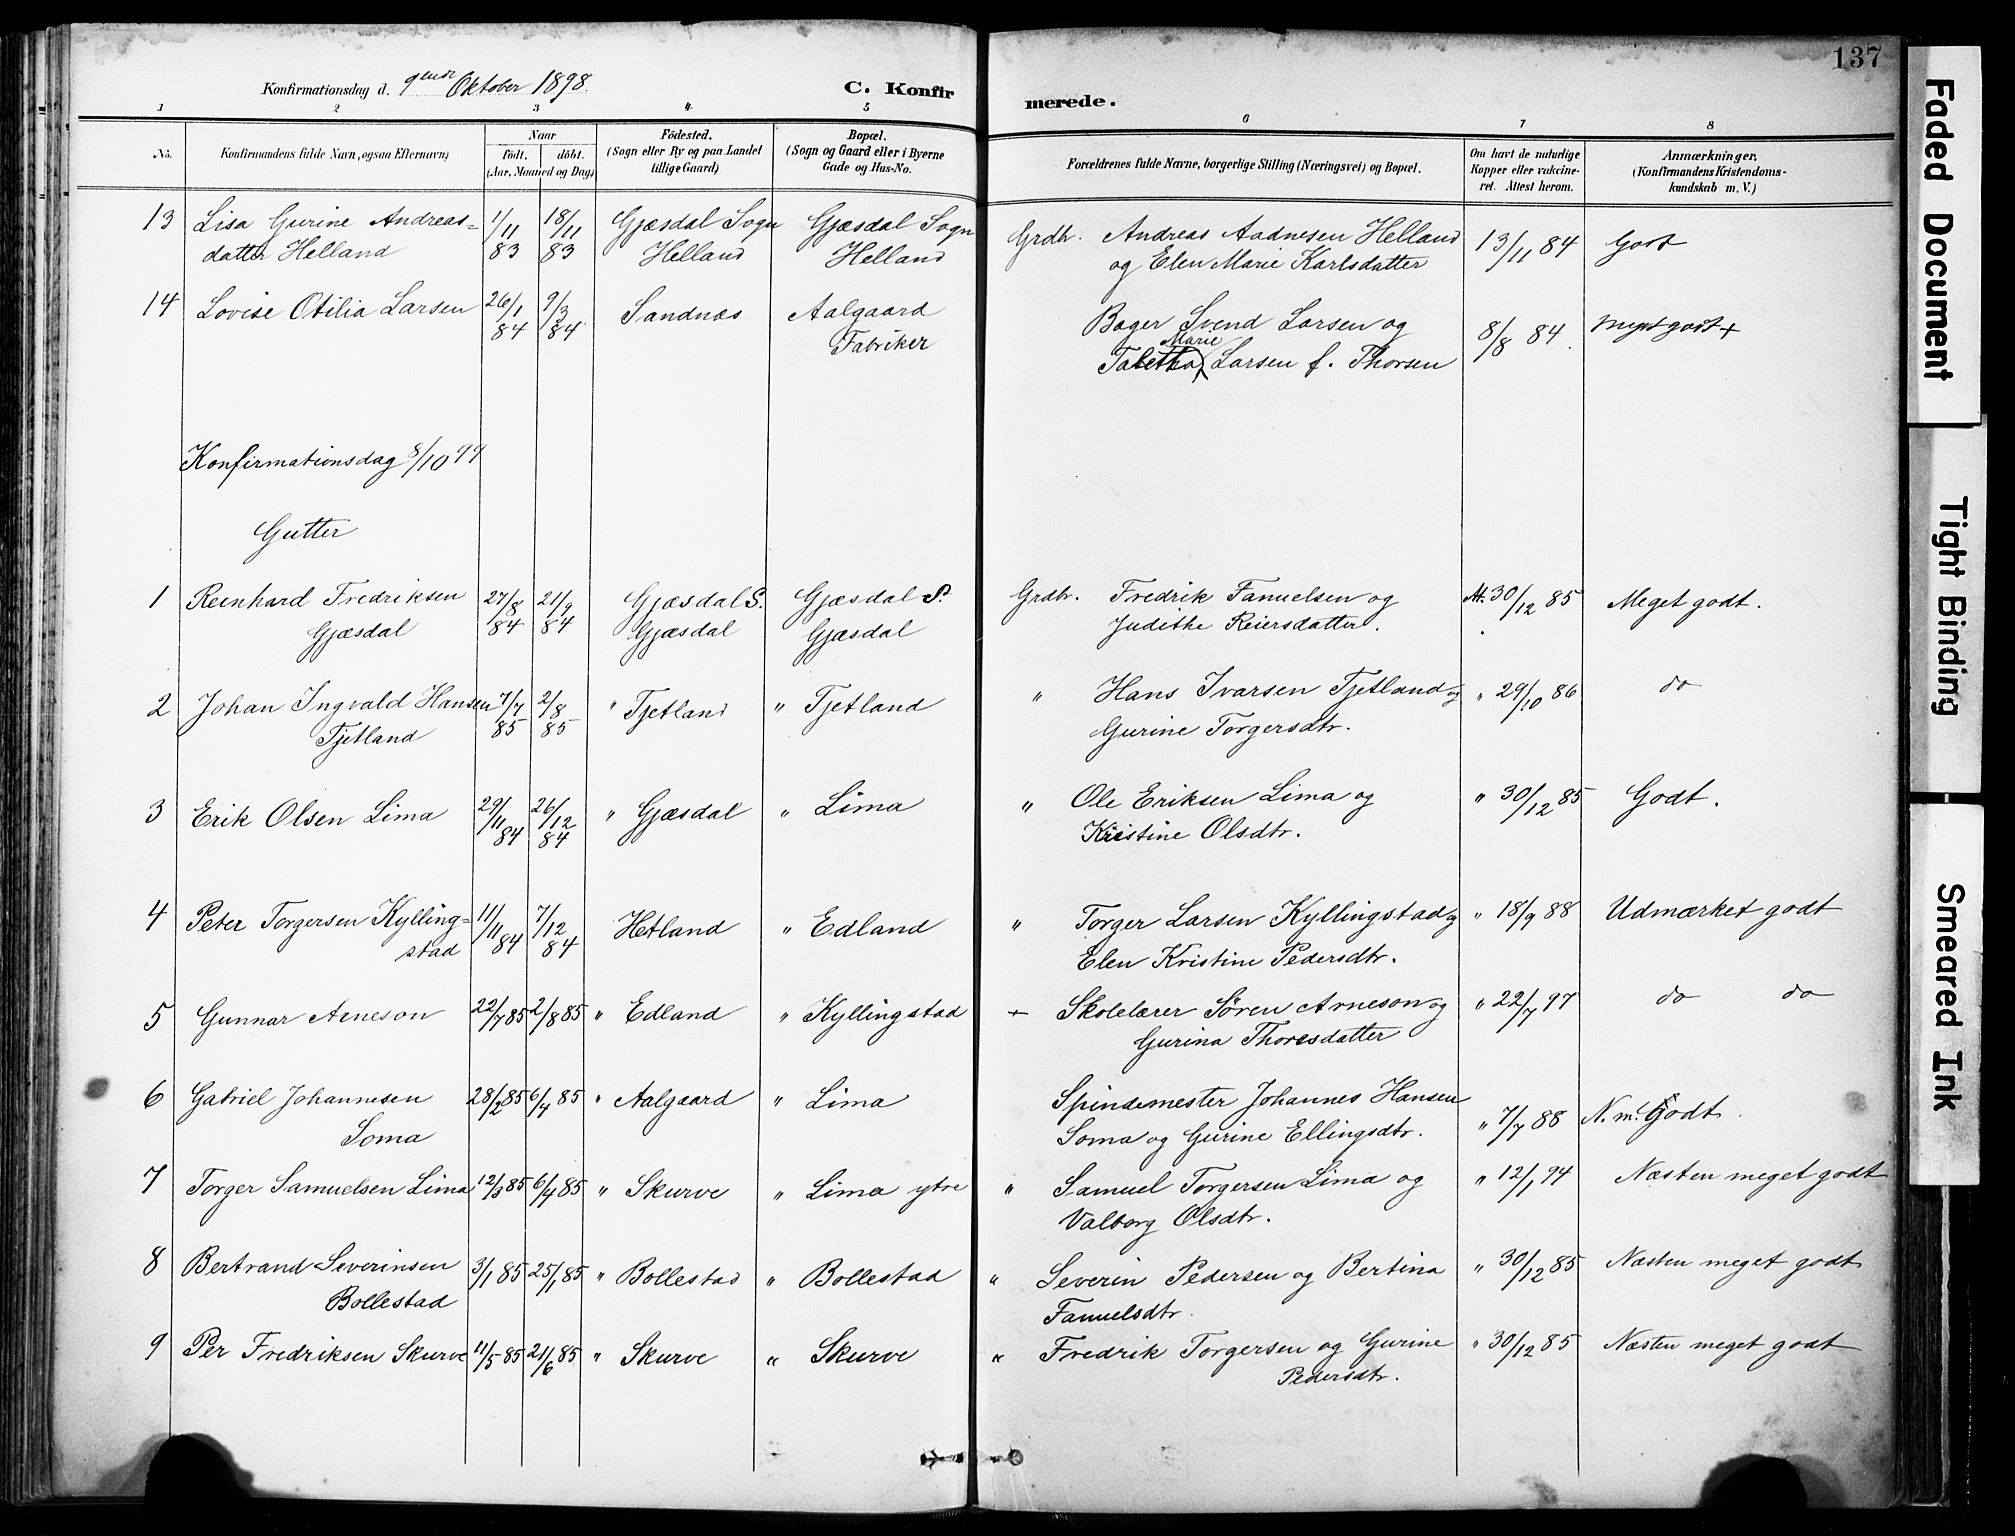 137
Konfirmationsdag d. 9ende Oktober 1898.
C. Konfirmerede.
1 2 3 4 5 6 7 8
No.
Konfirmandens fulde Navn, ogsaa Efternavn)
Naar
födt. döbt.
(Aar, Maaned og Dag)
Födested.
(Sogn eller By og paa Landet
tillige Gaard)
Bopæl.
(Sogn og Gaard eller i Byerne
Gade og Hus-No.
Forældrenes fulde Navne, borgerlige Stilling (Næringsvei) og Bopæl.
Om havt de naturlige
Kopper eller vakcine-
ret. Attest herom.
Anmærkninger.
(Konfirmandens Kristendoms-
kundskab m. V.)
13 Lisa Gurine Andreas= 1/11 18/11 Gjæsdal Sogn Gjæsdal Sogn Grdbr. Andreas Aadnesen Helland 13/11 84 Godt
datter Helland 83 83 Helland Helland og Elen Marie Karlsdatter
14 Lovise Otilia Larsen 26/1 9/3 Sandnæs Aalgaard Bager Svend Larsen og 8/8 84. Meget godt +
84 84 Fabriker Tabetha Marie Larsen f. Thorsen
Konfirmationsdag 8/10 99
Gutter
1 Reinhard Fredriksen 27/8 21/9 Gjæsdal S. Gjæsdal S. Grdbr. Fredrik Fanuelsen og At. 30/12 85 Meget godt.
Gjæsdal 84 84 Gjæsdal Gjæsdal Judithe Reiersdatter.
2 Johan Ingvald Hansen 7/7 2/8 " Tjetland " Tjetland " Hans Ivarsen Tjetland og " 29/10 86 do
Tjetland 85 85 Gurine Torgersdtr.
3 Erik Olsen Lima 29/11 26/12 " Gjæsdal " Lima " Ole Eriksen Lima og " 30/12 85 Godt.
84 84 Kristine Olsdtr.
4 Peter Torgersen Kylling= 11/11 7/12 Hetland " Edland " Torger Larsen Kyllingstad og " 18/9 88 Udmærket godt
stad 84 84 Elen Kristine Pedersdtr.
5 Gunnar Arneson 22/7 85 2/8 85 " Edland " Kyllingstad + Skolelærer Søren Arneson og " 22/7 97 do do
Gurina Thoresdatter
6 Gabriel Johannesen 28/2 85 6/4 85 " Aalgaard " Lima Spindemester Johannes Hansen " 7/7 88 N. m. Godt.
Soma Soma og Gurine Ellingsdtr.
7 Torger Samuelsen Lima 12/3 85 6/4 85 " Skurve " Lima ytre " Samuel Torgersen Lima og " 12/1 94 Næsten meget godt
Valborg Olsdtr.
8 Bertrand Severinsen 3/1 85 25/1 85 " Bollestad " Bollestad " Severin Pedersen og Bertina " 30/12 85 Næsten meget godt
Bollestad Fanuelsdtr.
9 Per Fredriksen Skurve 11/5 85 21/6 85 " Skurve " Skurve " Fredrik Torgersen og Gurine " 30/12 85 Næsten meget godt
Pedersdtr.
Faded Document
Tight Binding
Smeared Ink